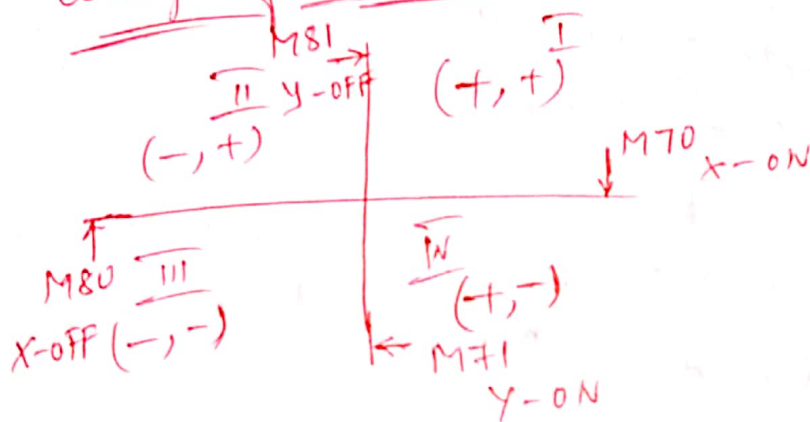 M81
I
II Y-OFF
(+,+)
(-,+)
M70
X-ON
M80
III
IV
X-OFF (-,-)
(+,-)
M71
Y-ON